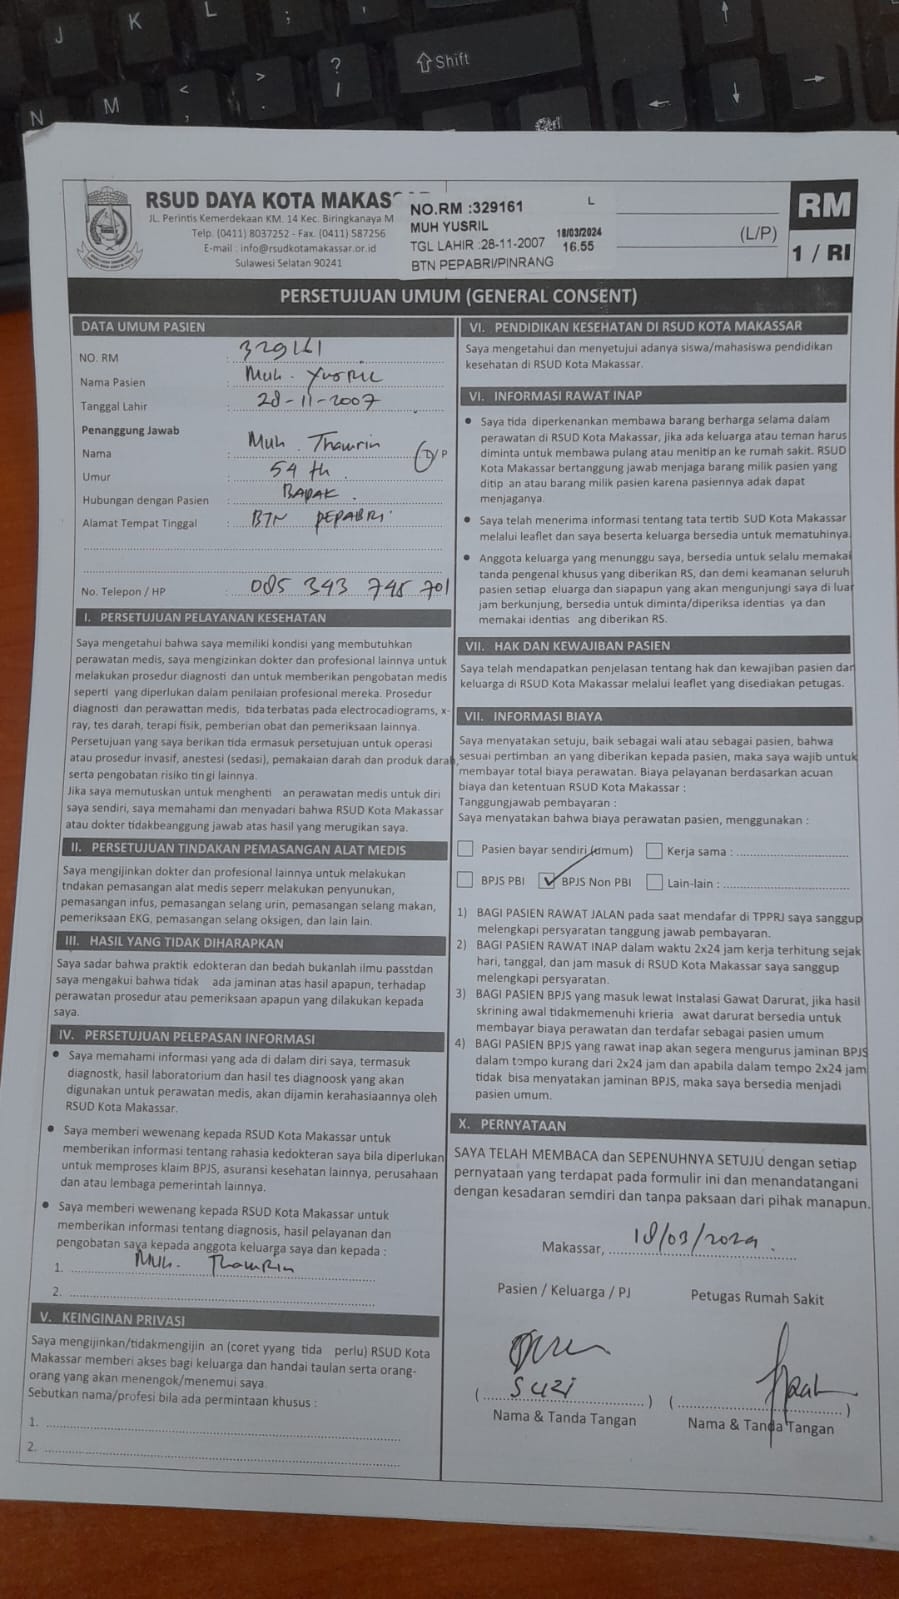 J K L ;
N M < , > . ? / ⇧ Shift
↑
← ↓ →
Ctrl
RSUD DAYA KOTA MAKAS
JL. Perintis Kemerdekaan KM. 14 Kec. Biringkanaya M
Telp. (0411) 8037252 - Fax. (0411) 587256
E-mail : info@rsudkotamakassar.or.id
Sulawesi Selatan 90241
NO.RM :329161 L
MUH YUSRIL 18/03/2024
TGL LAHIR :28-11-2007 16.55
BTN PEPABRI/PINRANG
(L/P)
RM
1 / RI
PERSETUJUAN UMUM (GENERAL CONSENT)
DATA UMUM PASIEN
NO. RM : 329161
Nama Pasien : Muh. Yusril
Tanggal Lahir : 28-11-2007
Penanggung Jawab
Nama : Muh. Thamrin L/P
Umur : 54 th
Hubungan dengan Pasien : BAPAK.
Alamat Tempat Tinggal : BTN PEPABRI.
No. Telepon / HP : 085 343 745 701
I. PERSETUJUAN PELAYANAN KESEHATAN
Saya mengetahui bahwa saya memiliki kondisi yang membutuhkan
perawatan medis, saya mengizinkan dokter dan profesional lainnya untuk
melakukan prosedur diagnosti dan untuk memberikan pengobatan medis
seperti yang diperlukan dalam penilaian profesional mereka. Prosedur
diagnosti dan perawattan medis, tida terbatas pada electrocadiograms, x-
ray, tes darah, terapi fisik, pemberian obat dan pemeriksaan lainnya.
Persetujuan yang saya berikan tida ermasuk persetujuan untuk operasi
atau prosedur invasif, anestesi (sedasi), pemakaian darah dan produk darah,
serta pengobatan risiko tingi lainnya.
Jika saya memutuskan untuk menghenti an perawatan medis untuk diri
saya sendiri, saya memahami dan menyadari bahwa RSUD Kota Makassar
atau dokter tidakbeanggung jawab atas hasil yang merugikan saya.
II. PERSETUJUAN TINDAKAN PEMASANGAN ALAT MEDIS
Saya mengijinkan dokter dan profesional lainnya untuk melakukan
tndakan pemasangan alat medis seperr melakukan penyunukan,
pemasangan infus, pemasangan selang urin, pemasangan selang makan,
pemeriksaan EKG, pemasangan selang oksigen, dan lain lain.
III. HASIL YANG TIDAK DIHARAPKAN
Saya sadar bahwa praktik edokteran dan bedah bukanlah ilmu passtdan
saya mengakui bahwa tidak ada jaminan atas hasil apapun, terhadap
perawatan prosedur atau pemeriksaan apapun yang dilakukan kepada
saya.
IV. PERSETUJUAN PELEPASAN INFORMASI
• Saya memahami informasi yang ada di dalam diri saya, termasuk
diagnostk, hasil laboratorium dan hasil tes diagnoosk yang akan
digunakan untuk perawatan medis, akan dijamin kerahasiaannya oleh
RSUD Kota Makassar.
• Saya memberi wewenang kepada RSUD Kota Makassar untuk
memberikan informasi tentang rahasia kedokteran saya bila diperlukan
untuk memproses klaim BPJS, asuransi kesehatan lainnya, perusahaan
dan atau lembaga pemerintah lainnya.
• Saya memberi wewenang kepada RSUD Kota Makassar untuk
memberikan informasi tentang diagnosis, hasil pelayanan dan
pengobatan saya kepada anggota keluarga saya dan kepada :
1. Muh. Thamrin
2.
V. KEINGINAN PRIVASI
Saya mengijinkan/tidakmengijin an (coret yyang tida perlu) RSUD Kota
Makassar memberi akses bagi keluarga dan handai taulan serta orang-
orang yang akan menengok/menemui saya.
Sebutkan nama/profesi bila ada permintaan khusus :
1.
2.
VI. PENDIDIKAN KESEHATAN DI RSUD KOTA MAKASSAR
Saya mengetahui dan menyetujui adanya siswa/mahasiswa pendidikan
kesehatan di RSUD Kota Makassar.
VI. INFORMASI RAWAT INAP
• Saya tida diperkenankan membawa barang berharga selama dalam
perawatan di RSUD Kota Makassar, jika ada keluarga atau teman harus
diminta untuk membawa pulang atau menitip an ke rumah sakit. RSUD
Kota Makassar bertanggung jawab menjaga barang milik pasien yang
ditip an atau barang milik pasien karena pasiennya adak dapat
menjaganya.
• Saya telah menerima informasi tentang tata tertib SUD Kota Makassar
melalui leaflet dan saya beserta keluarga bersedia untuk mematuhinya.
• Anggota keluarga yang menunggu saya, bersedia untuk selalu memakai
tanda pengenal khusus yang diberikan RS, dan demi keamanan seluruh
pasien setiap eluarga dan siapapun yang akan mengunjungi saya di luar
jam berkunjung, bersedia untuk diminta/diperiksa identias ya dan
memakai identias ang diberikan RS.
VII. HAK DAN KEWAJIBAN PASIEN
Saya telah mendapatkan penjelasan tentang hak dan kewajiban pasien dan
keluarga di RSUD Kota Makassar melalui leaflet yang disediakan petugas.
VII. INFORMASI BIAYA
Saya menyatakan setuju, baik sebagai wali atau sebagai pasien, bahwa
sesuai pertimban an yang diberikan kepada pasien, maka saya wajib untuk
membayar total biaya perawatan. Biaya pelayanan berdasarkan acuan
biaya dan ketentuan RSUD Kota Makassar :
Tanggungjawab pembayaran :
Saya menyatakan bahwa biaya perawatan pasien, menggunakan :
Pasien bayar sendiri (umum) Kerja sama :
BPJS PBI ✓ BPJS Non PBI Lain-lain :
1) BAGI PASIEN RAWAT JALAN pada saat mendafar di TPPRJ saya sanggup
melengkapi persyaratan tanggung jawab pembayaran.
2) BAGI PASIEN RAWAT INAP dalam waktu 2x24 jam kerja terhitung sejak
hari, tanggal, dan jam masuk di RSUD Kota Makassar saya sanggup
melengkapi persyaratan.
3) BAGI PASIEN BPJS yang masuk lewat Instalasi Gawat Darurat, jika hasil
skrining awal tidakmemenuhi krieria awat darurat bersedia untuk
membayar biaya perawatan dan terdafar sebagai pasien umum
4) BAGI PASIEN BPJS yang rawat inap akan segera mengurus jaminan BPJS
dalam tempo kurang dari 2x24 jam dan apabila dalam tempo 2x24 jam
tidak bisa menyatakan jaminan BPJS, maka saya bersedia menjadi
pasien umum.
X. PERNYATAAN
SAYA TELAH MEMBACA dan SEPENUHNYA SETUJU dengan setiap
pernyataan yang terdapat pada formulir ini dan menandatangani
dengan kesadaran semdiri dan tanpa paksaan dari pihak manapun.
Makassar, 18/03/2024.
Pasien / Keluarga / PJ Petugas Rumah Sakit
( Suzi ) ( )
Nama & Tanda Tangan Nama & Tanda Tangan